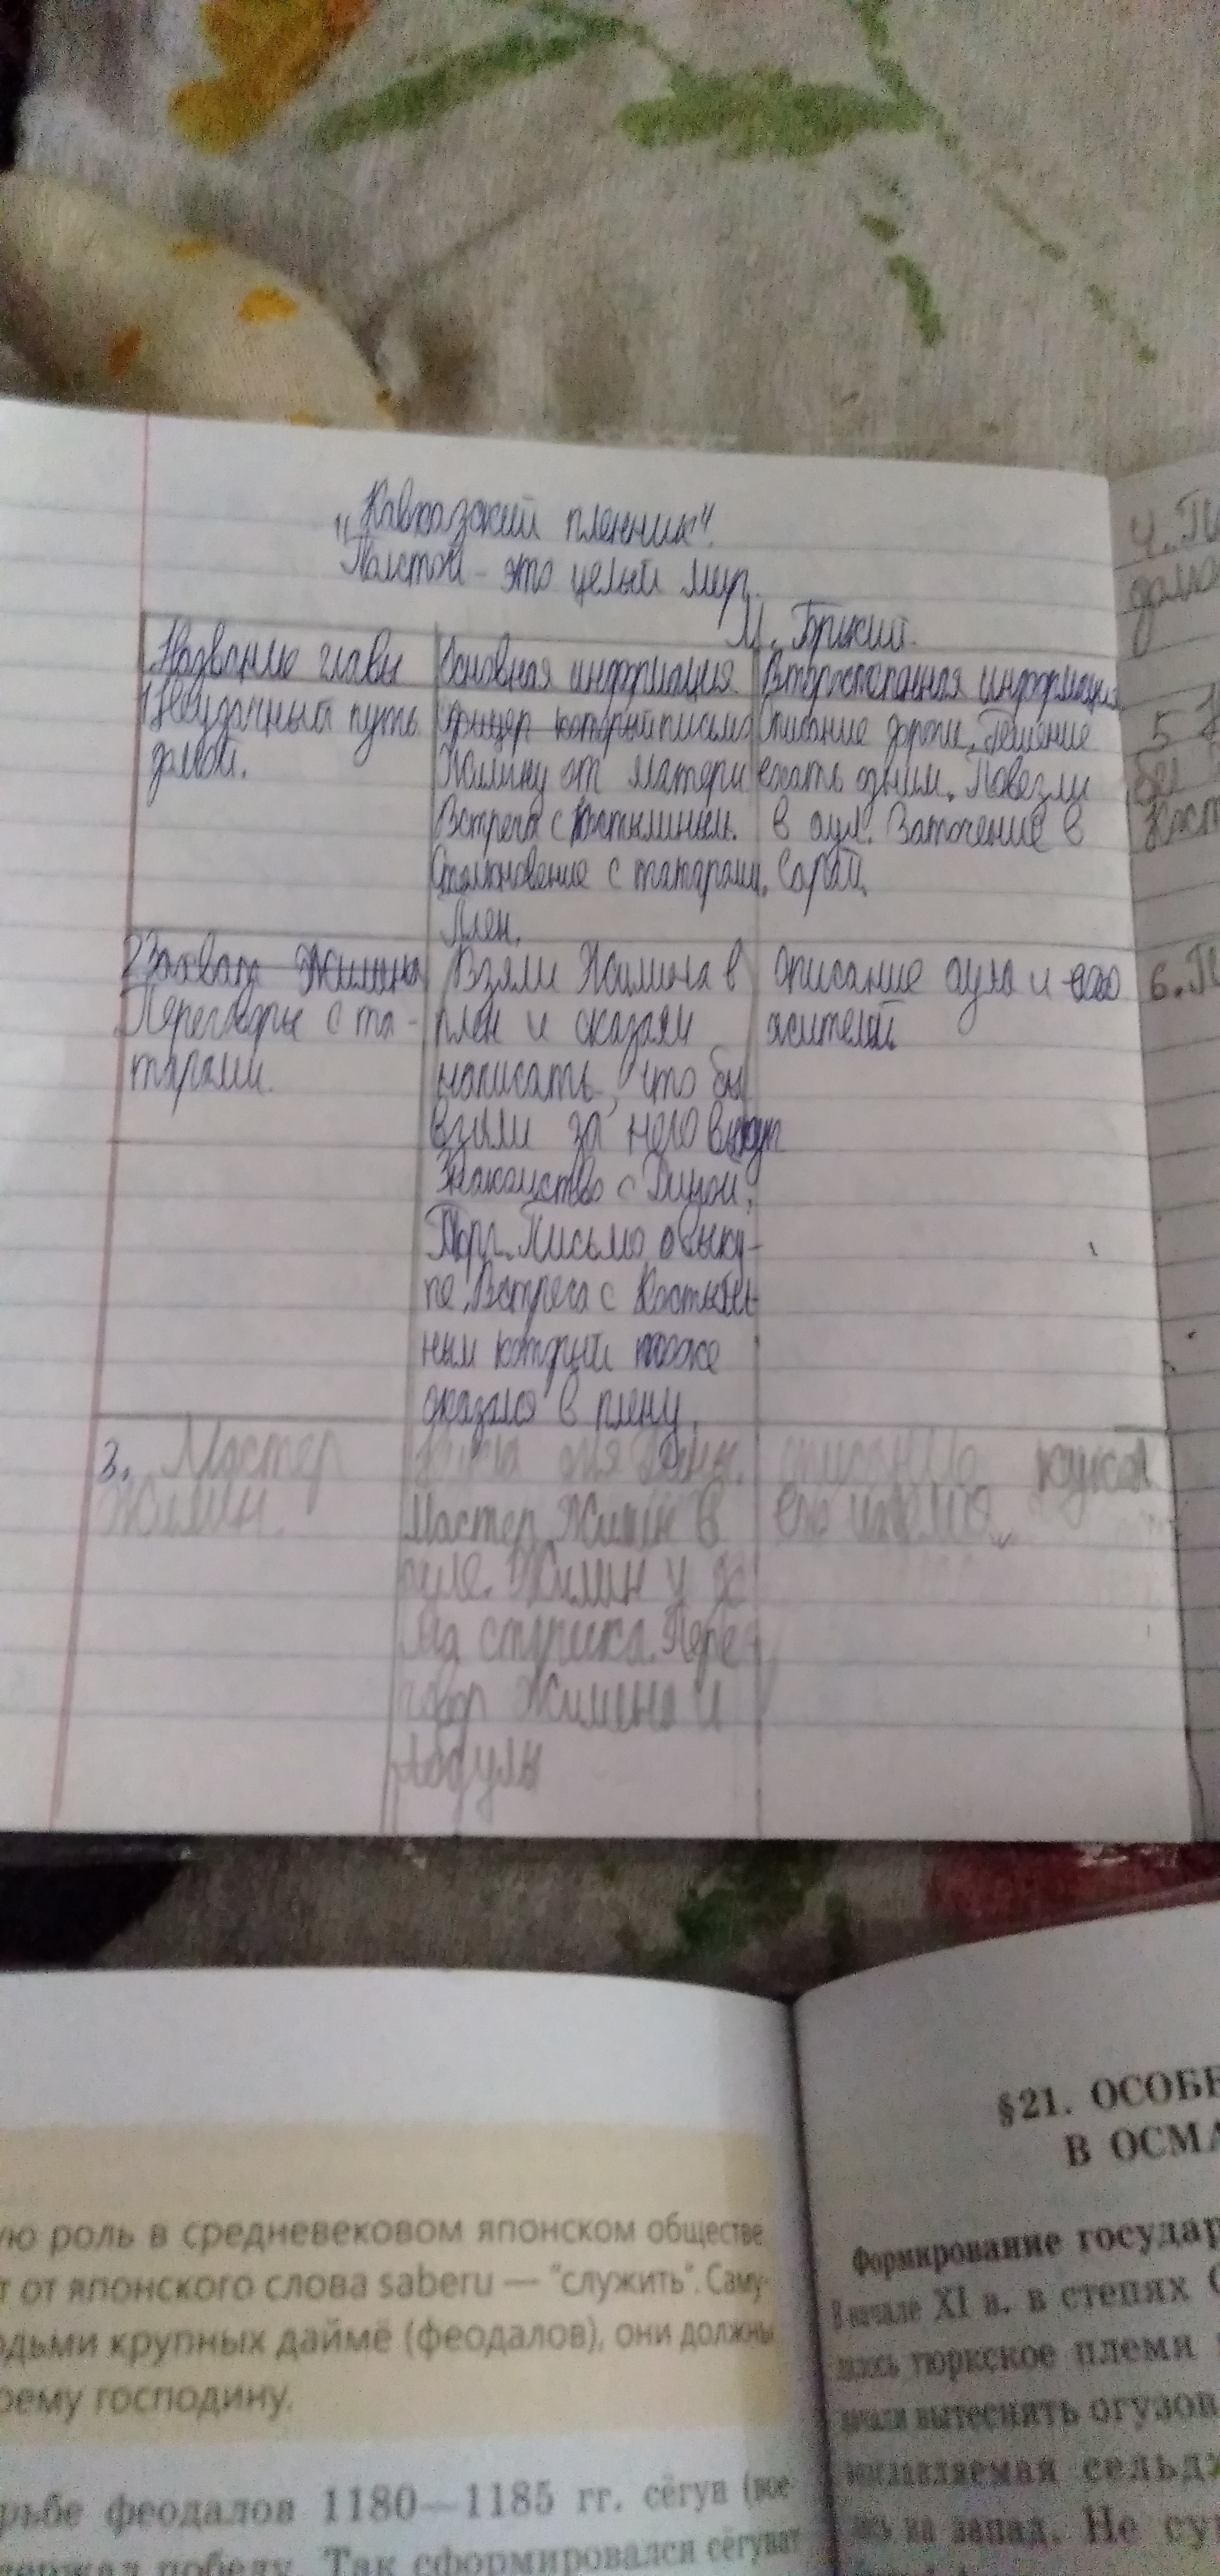 "Кавказский пленник".
Толстой - это целый мир.
М. Горький.
Название главы
Основная информация
Второстепенная информация
1 Неудачный путь
домой.
письмо
Жилину от матери
Встреча с Костылиным.
Столкновение с татарами.
Плен.
Описание дороги. Решение
ехать одним. Повезли
в аул. Заточение в
сарай.
2 Захват Жилина
Переговоры с та-
тарами.
Взяли Жилина в
плен и сказали
написать, что бы
взяли за него выкуп
Знакомство с Диной.
Торг. Письмо о выку-
пе. Встреча с Костыли-
ным который позже
оказался в плену.
описание аула и его
жителей
3. Мастер
Жилин.
Кукла для Дины.
Мастер Жилин в
ауле. Жилин у до
ма старика. Пере
говор Жилина и
Абдулы
описание кукол
4.
5
6.
§21. ОСОБЕ
В ОСМА
ую роль в средневековом японском обществе
т от японского слова saberu — "служить". Саму-
одьми крупных даймё (феодалов), они должны
оему господину.
рьбе феодалов 1180—1185 гг. сёгун (вое-
держал победу. Так сформировался сёгунат
Формирование государ
В начале XI в. в степях
лось тюркское племи
начали вытеснять огузов
сельд
на запад. Не су